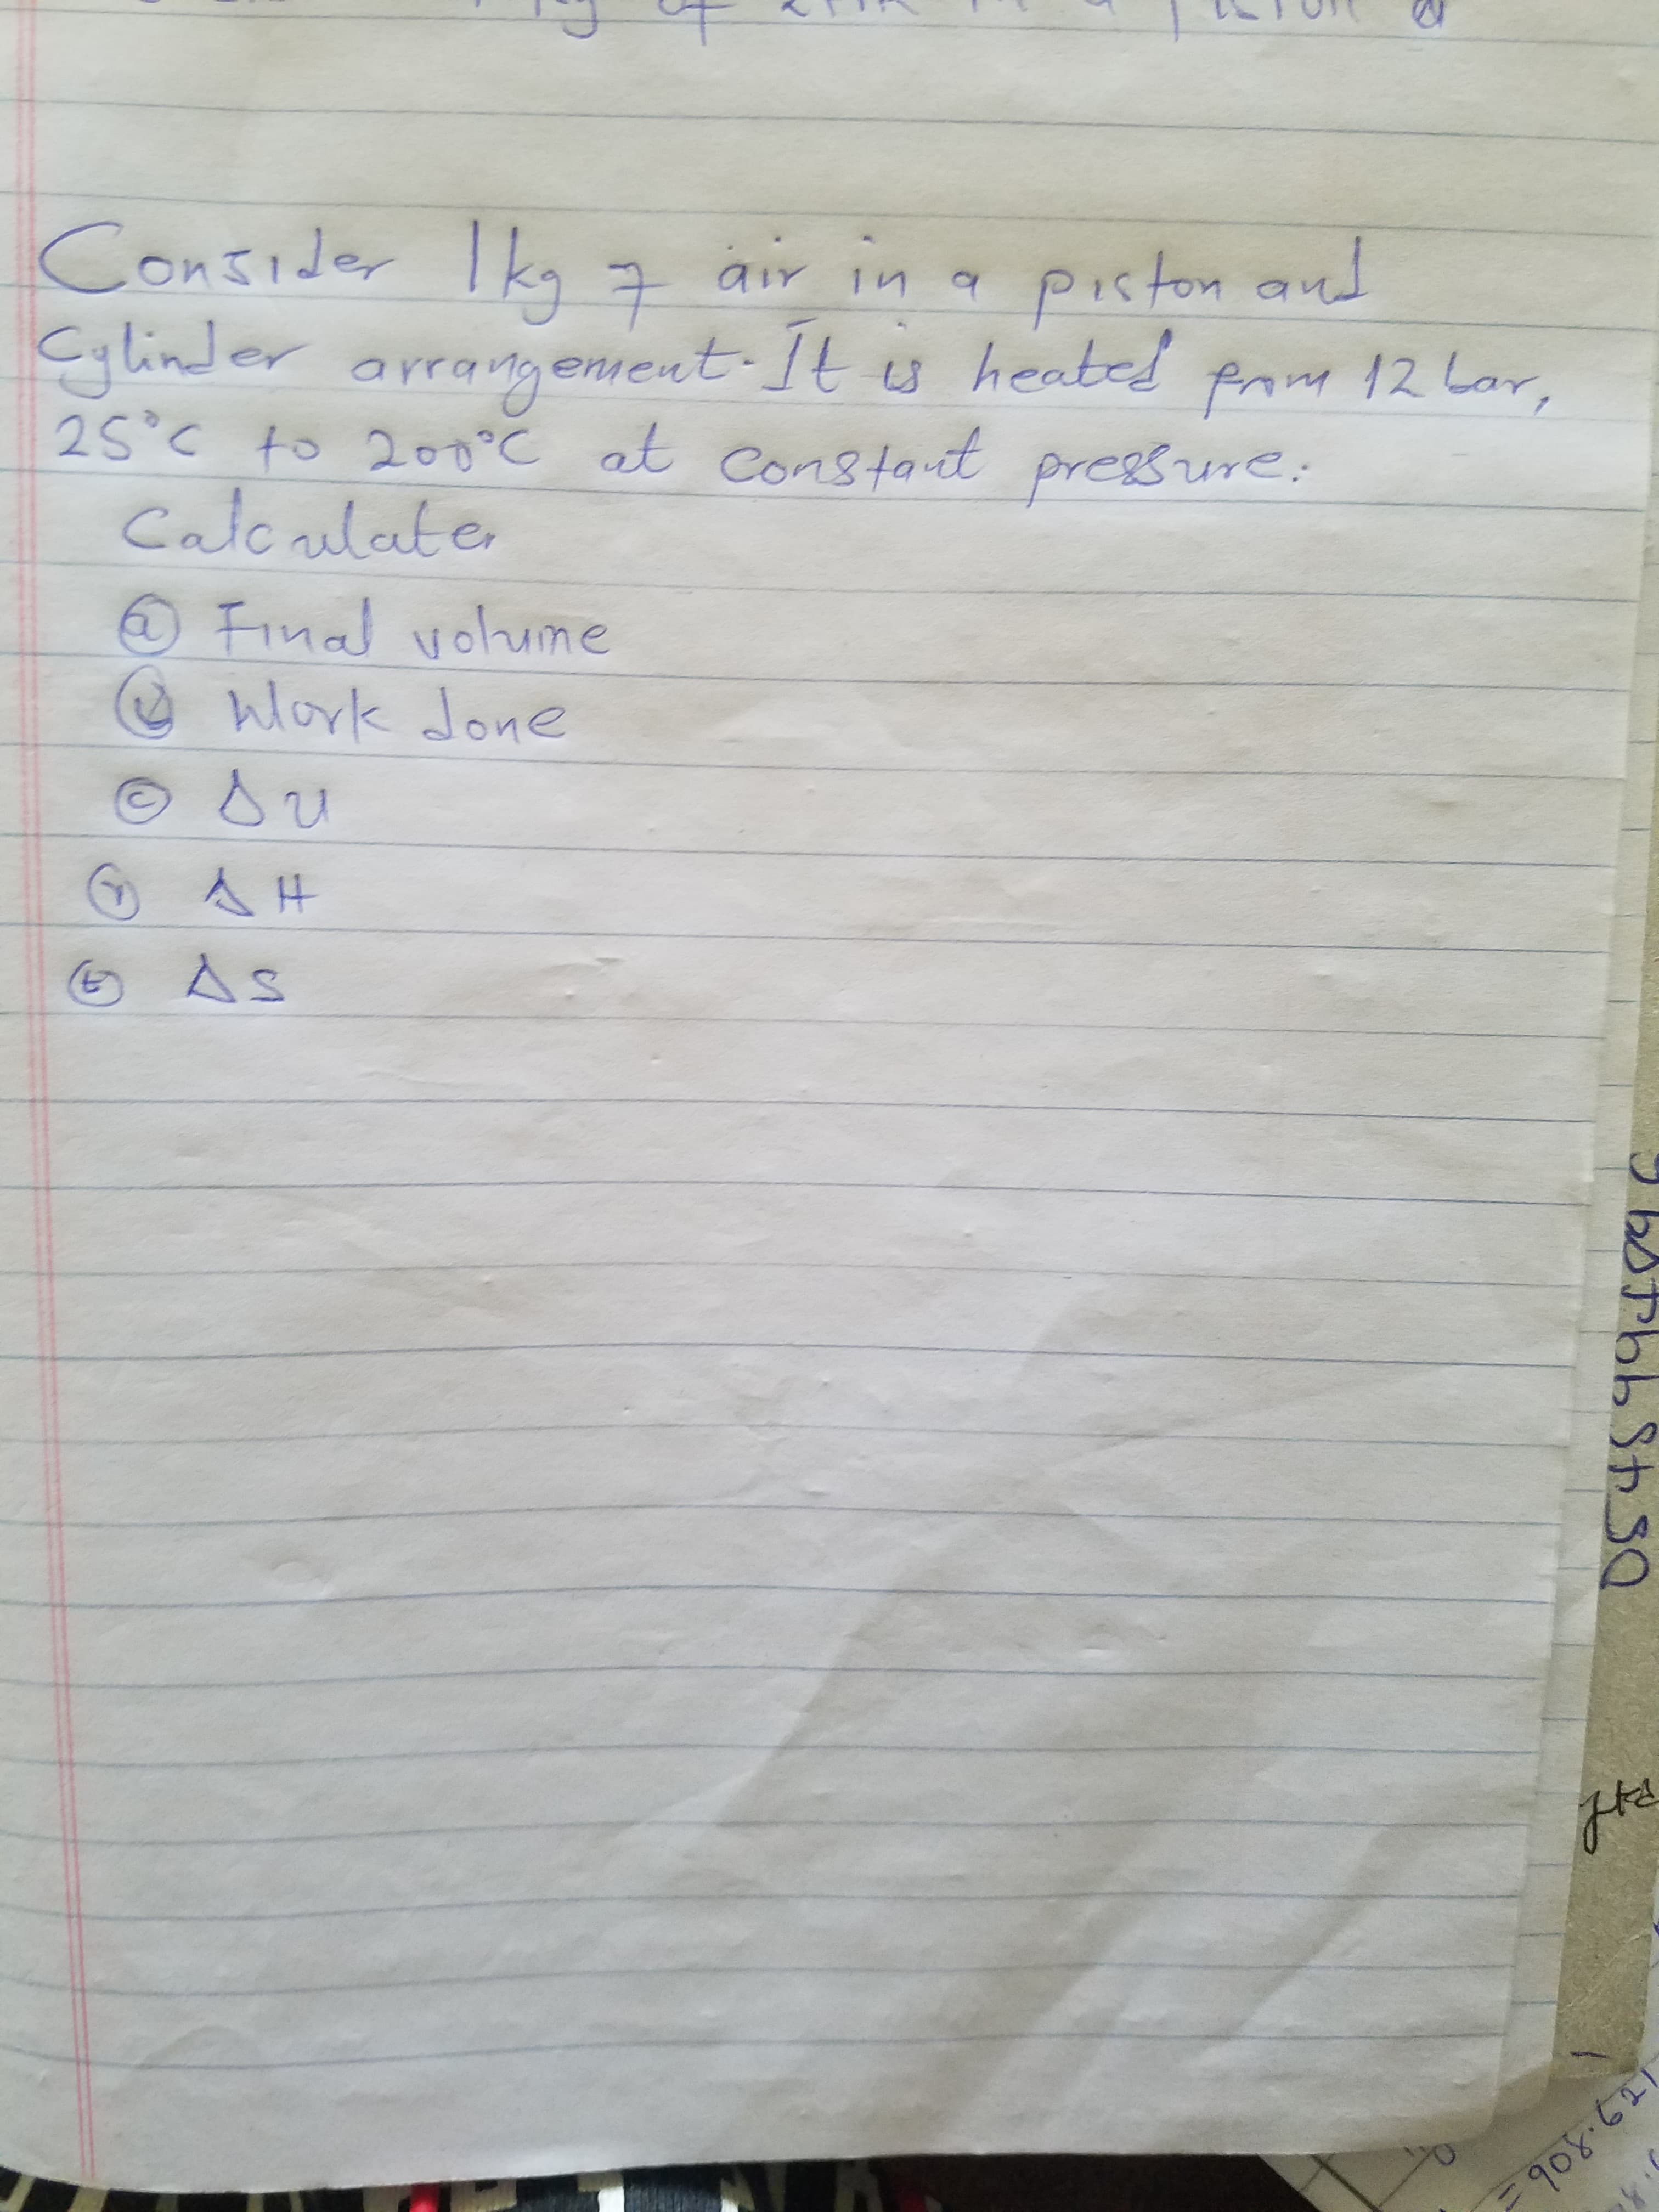 Consider 1kg of air in a piston and
Cylinder arrangement. It is heated from 12 bar,
25°C to 200°C at constant pressure.
Calculate
(a) Final volume
(b) Work done
(c) ΔU
ΔH
(e) ΔS
= 908.621